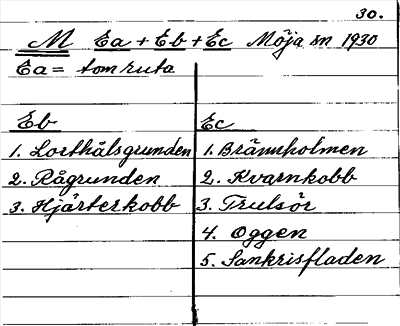 30.
M Ea + Eb + Ec Möja sn 1930
Ea = tom ruta
Eb
1. Lorthålsgrunden
2. Rågrunden
3. Hjärterkobb
Ec
1. Brännholmen
2. Kvarnkobb
3. Trulsör
4. Oggen
5. Sankrisfladen